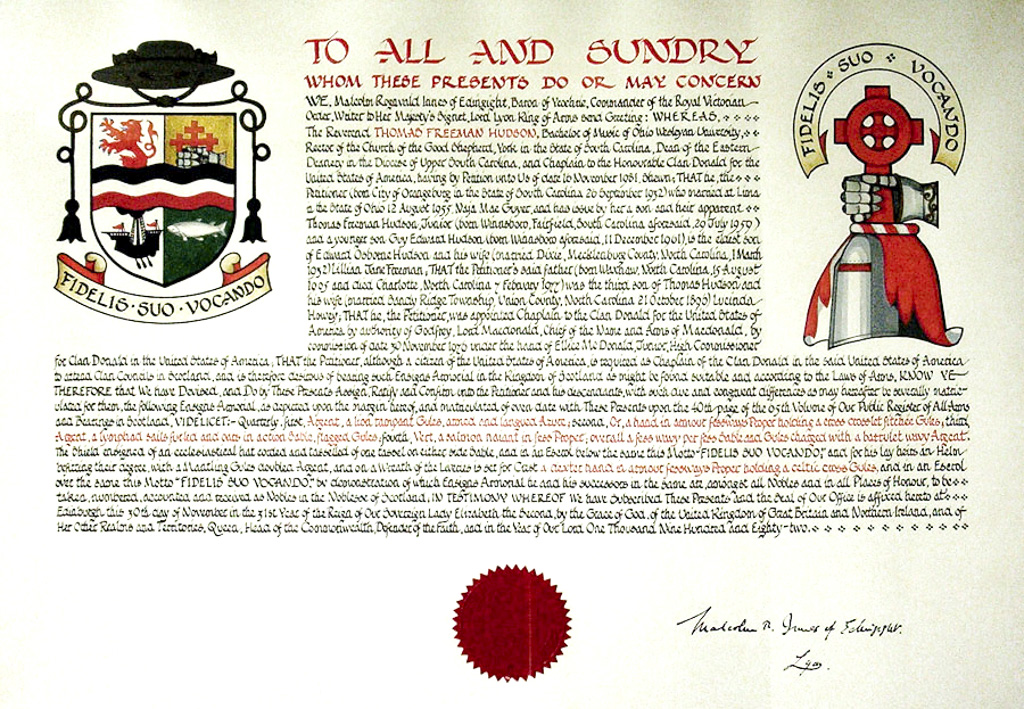 TO ALL AND SUNDRY
WHOM THESE PRESENTS DO OR MAY CONCERN
WE, Malcolm Rognvald Innes of Edingight, Baron of Yeochrie, Commander of the Royal Victorian
Order, Writer to Her Majesty's Signet, Lord Lyon King of Arms send Greeting: WHEREAS,
The Reverend THOMAS FREEMAN HUDSON, Bachelor of Music of Ohio Wesleyan University,
Rector of the Church of the Good Shepherd, York in the State of South Carolina, Dean of the Eastern
Deanery in the Diocese of Upper South Carolina, and Chaplain to the Honourable Clan Donald for the
United States of America, having by Petition unto Us of date 16 November 1981, Shewn; THAT he, the
Petitioner (born City of Orangeburg in the State of South Carolina 26 September 1932) who married at Lima
in the State of Ohio 12 August 1955, Naja Mae Guyer, and has issue by her a son and heir apparent
Thomas Freeman Hudson, Junior (born Winnsboro, Fairfield, South Carolina aforesaid, 20 July 1959)
and a younger son Guy Edward Hudson (born Winnsboro aforesaid, 11 December 1961), is the eldest son
of Edward Osborne Hudson and his wife (married Dixie, Mecklenburg County, North Carolina, 1 March
1932) Lillian Jane Freeman; THAT the Petitioner's said father (born Waxhaw, North Carolina, 15 August
1905 and died Charlotte, North Carolina 7 February 1977) was the third son of Thomas Hudson and
his wife (married Sandy Ridge Township, Union County, North Carolina 21 October 1896) Lucinda
Howey; THAT he, the Petitioner, was appointed Chaplain to the Clan Donald for the United States of
America by authority of Godfrey, Lord Macdonald, Chief of the Name and Arms of Macdonald, by
commission of date 30 November 1978 under the hand of Ellice Mc Donald, Junior, High Commissioner
for Clan Donald in the United States of America; THAT the Petitioner, although a citizen of the United States of America, is required as Chaplain of the Clan Donald in the said United States of America
to attend Clan Councils in Scotland, and is therefore desirous of bearing such Ensigns Armorial in the Kingdom of Scotland as might be found suitable and according to the Laws of Arms, KNOW YE
THEREFORE that We have Devised, and Do by These Presents Assign, Ratify and Confirm unto the Petitioner and his descendants with such due and congruent differences as may hereafter be severally matric-
ulated for them, the following Ensigns Armorial, as depicted upon the margin hereof, and matriculated of even date with These Presents upon the 40th page of the 65th Volume of Our Public Register of All Arms
and Bearings in Scotland, VIDELICET:- Quarterly: first, Argent, a lion rampant Gules, armed and langued Azure; second, Or, a hand in armour fessways Proper holding a cross crosslet fitchée Gules; third,
Argent, a lymphad sails furled and oars in action Sable, flagged Gules; fourth, Vert, a salmon naiant in fess Proper; overall a fess wavy per fess Sable and Gules charged with a barrulet wavy Argent.
The Shield ensigned of an ecclesiastical hat corded and tasselled of one tassel on either side Sable, and in an Escrol below the same this Motto "FIDELIS SUO VOCANDO," and for his lay heirs an Helm
befitting their degree, with a Mantling Gules doubled Argent, and on a Wreath of the Liveries is set for Crest a dexter hand in armour fessways Proper holding a celtic cross Gules, and in an Escrol
over the same this Motto "FIDELIS SUO VOCANDO," by demonstration of which Ensigns Armorial he and his successors in the same are, amongst all Nobles and in all Places of Honour, to be
taken, numbered, accounted and received as Nobles in the Noblesse of Scotland; IN TESTIMONY WHEREOF We have Subscribed These Presents and the Seal of Our Office is affixed hereto at
Edinburgh this 30th day of November in the 31st Year of the Reign of Our Sovereign Lady Elizabeth the Second, by the Grace of God, of the United Kingdom of Great Britain and Northern Ireland, and of
Her Other Realms and Territories, Queen, Head of the Commonwealth, Defender of the Faith, and in the Year of Our Lord One Thousand Nine Hundred and Eighty-two.
FIDELIS · SUO · VOCANDO
FIDELIS SUO VOCANDO
Malcolm R. Innes of Edingight.
Lyon.